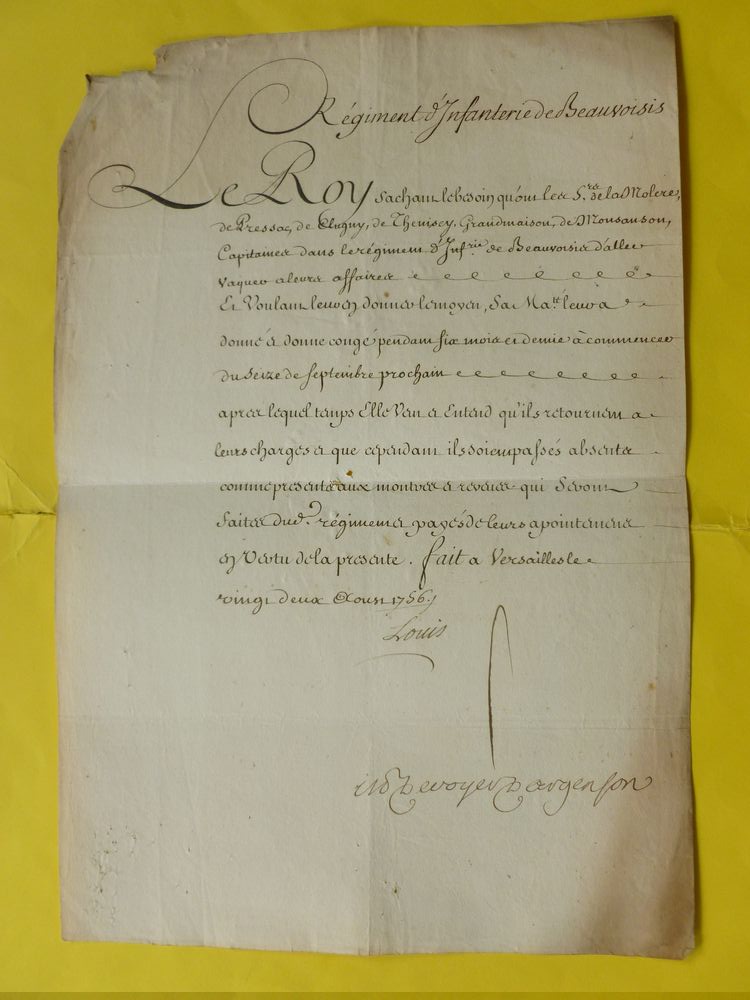 Régiment d'Infanterie de Beauvoisis
Le Roy sachant le besoin qu'ont les Srs. de la Molere,
de Pressac, de Clugny, de Thenisey, Grandmaison, de Monsanson,
Capitaines dans le régiment d'Infrie de Beauvoisis d'aller
vaquer a leurs affaires
Et Voulant leur en donner le moyen, Sa Mate. leur a
donné et donne congé pendant six mois et demie à commencer
du seize de septembre prochain
apres lequel temps Elle Veut et Entend qu'ils retournent a
leurs charges et que cependant ils soient passés absents
comme presents aux montres et reveues qui Seront
faites dud. régiment et payés de leurs apointemens
en Vertu de la presente. fait a Versailles le
vingt deux Aoust 1756.
Louis
M De voyer D'argenson